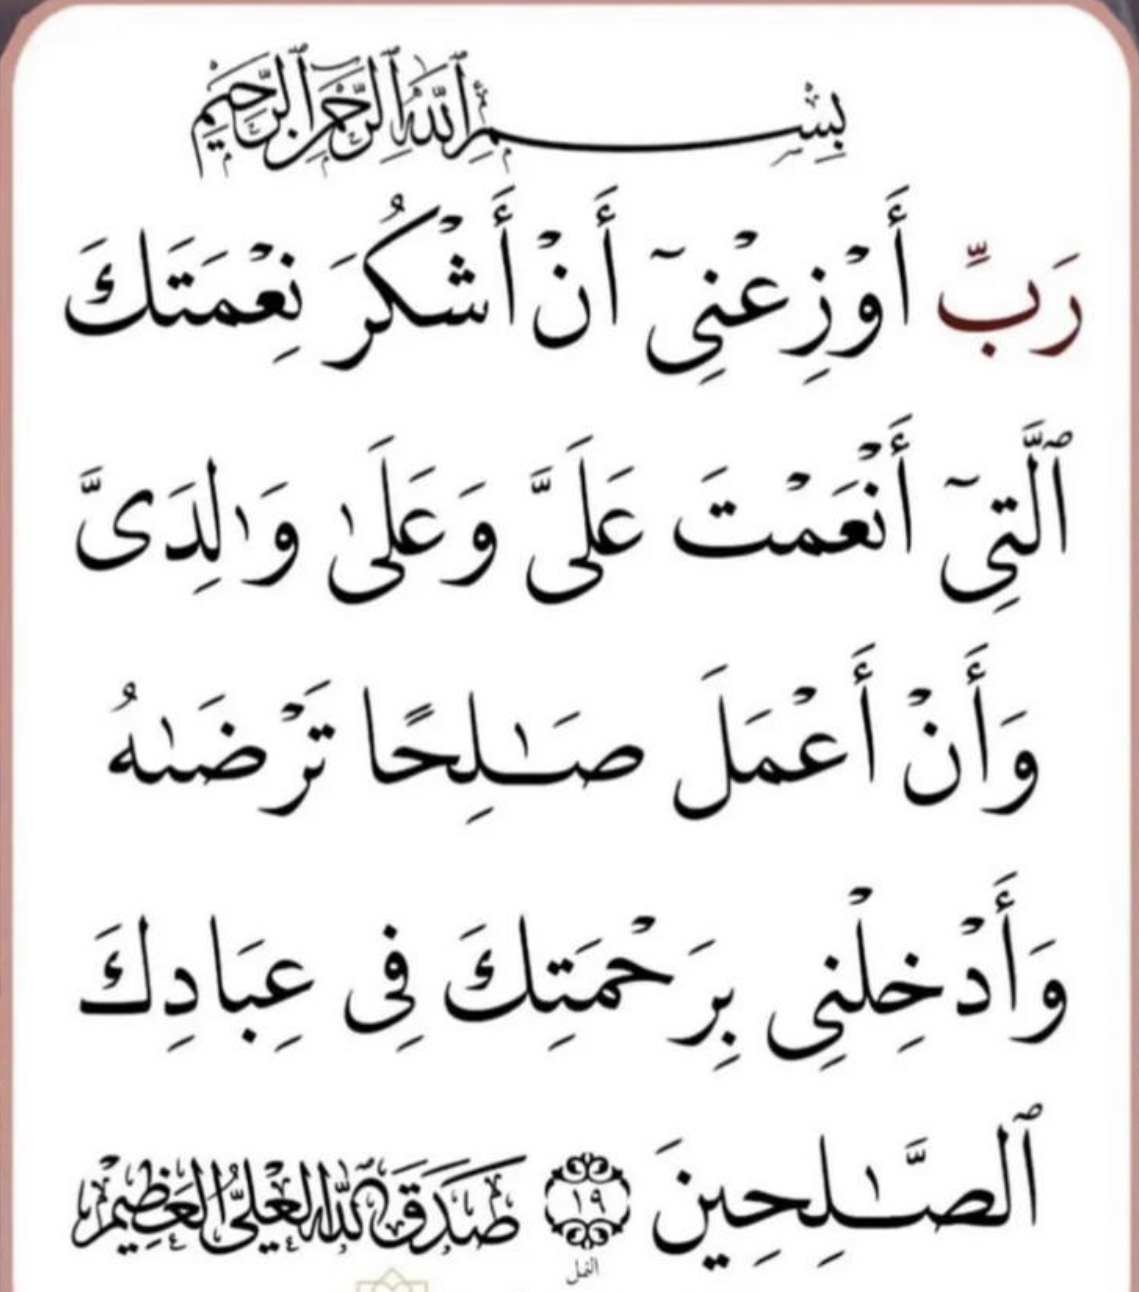 بِسْمِ ٱللَّهِ ٱلرَّحْمَٰنِ ٱلرَّحِيمِ
رَبِّ أَوْزِعْنِىٓ أَنْ أَشْكُرَ نِعْمَتَكَ
ٱلَّتِىٓ أَنْعَمْتَ عَلَىَّ وَعَلَىٰ وَٰلِدَىَّ
وَأَنْ أَعْمَلَ صَـٰلِحًا تَرْضَىٰهُ
وَأَدْخِلْنِى بِرَحْمَتِكَ فِى عِبَادِكَ
ٱلصَّـٰلِحِينَ ١٩ صَدَقَ ٱللَّهُ ٱلْعَلِيُّ ٱلْعَظِيمْ
النمل